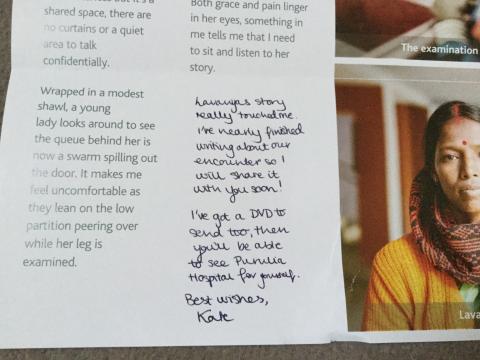 shared space, there are
no curtains or a quiet
area to talk
confidentially.
Wrapped in a modest
shawl, a young
lady looks around to see
the queue behind her is
now a swarm spilling out
the door. It makes me
feel uncomfortable as
they lean on the low
partition peering over
while her leg is
examined.
Both grace and pain linger
in her eyes, something in
me tells me that I need
to sit and listen to her
story.
Lavanya's story
really touched me.
I've nearly finished
writing about our
encounter so I
will share it
with you soon!
I've got a DVD to
send too, then
you'll be able
to see Purulia
Hospital for yourself.
Best wishes,
Kate
The examination
Lava